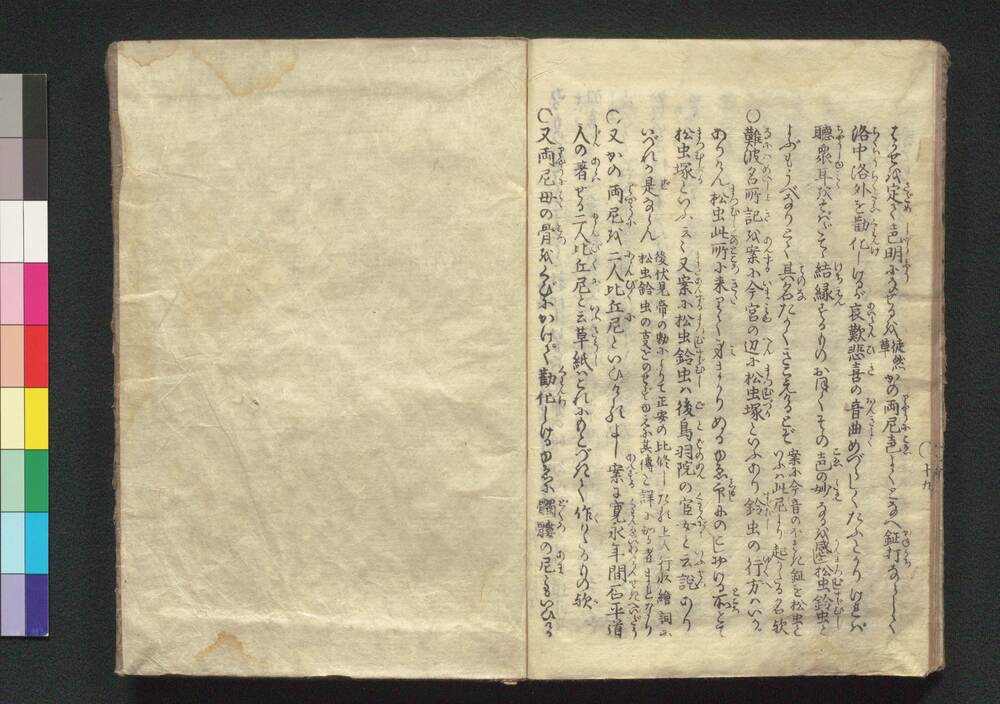 はかせを定て声明にのせるを徒然草かの両尼声よくとなへ鉦打ならして
洛中洛外を勧化しけるが哀歎悲喜の音曲めづらしくたふとかりければ
聴衆耳をそばだて結縁するものおほくその声の妙なるを感じ松虫鈴虫と
よびもてはやし其名たかくきこえけるとぞ 案に今音のよき鉦を松虫といふは此尼より起りたる名歟
○難波名所記を案に今宮の辺に松虫塚といふあり鈴虫の行方はいかゞ
ありけん松虫此所に来りて身まかりめるゆゑに
松虫塚といふ云云又案に松虫鈴虫は後鳥羽院の官女と云説あり
いづれか是ならん 後伏見帝の勅によりて正安の比修したれ上人行状絵詞に松虫鈴虫の事をのせざるゆゑに其傳を詳にする者まれなり
○又かの両尼を二人比丘尼といひけるよし案に寛永年間石平道
人の著せる二人比丘尼と云草紙はこれにもとづきて作りたるもの歟
○又両尼母の骨をくびにかけて勧化しけるゆゑに髑髏の尼ともいひける
十九